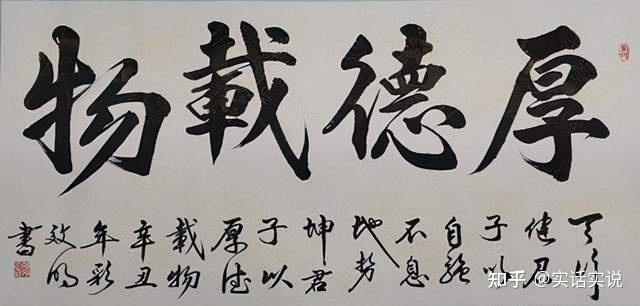 厚德載物
天行
健君
子以
自强
不息
地势
坤君
子以
厚德
載物
辛丑
年彩
效
書
知乎 @实话实说